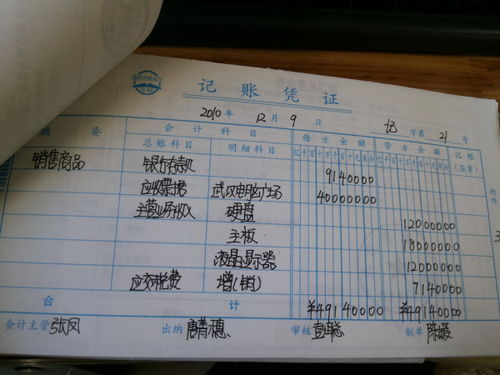 记账凭证
2010年12月9日 记字第21号
摘要 会计科目 借方金额 贷方金额 记账(签章)
总账科目 明细科目
销售商品 银行存款 9140000
应收票据 武汉电脑广场 40000000
主营业务收入 硬盘 12000000
主板 18000000
液晶显示器 12000000
应交税费 增(销) 7140000
合计 ¥49140000 ¥49140000
会计主管 张凤 出纳 审核 制单